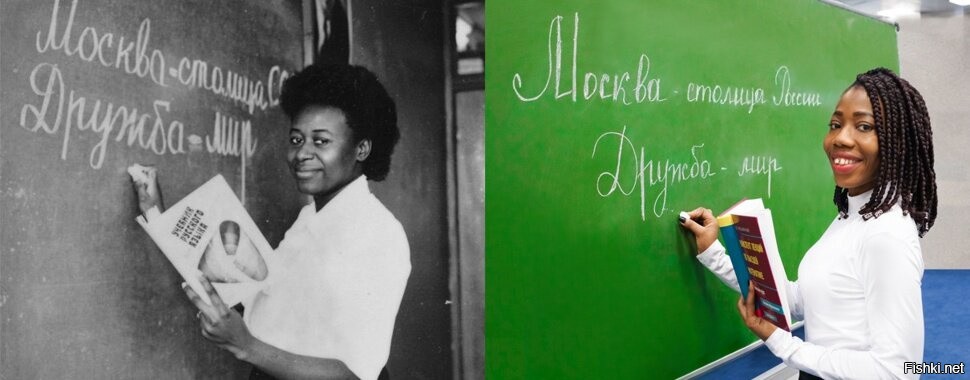 Москва-столица СС
Дружба-мир
УЧЕБНИК
РУССКОГО
ЯЗЫКА
Москва - столица России
Дружба - мир
Fishki.net